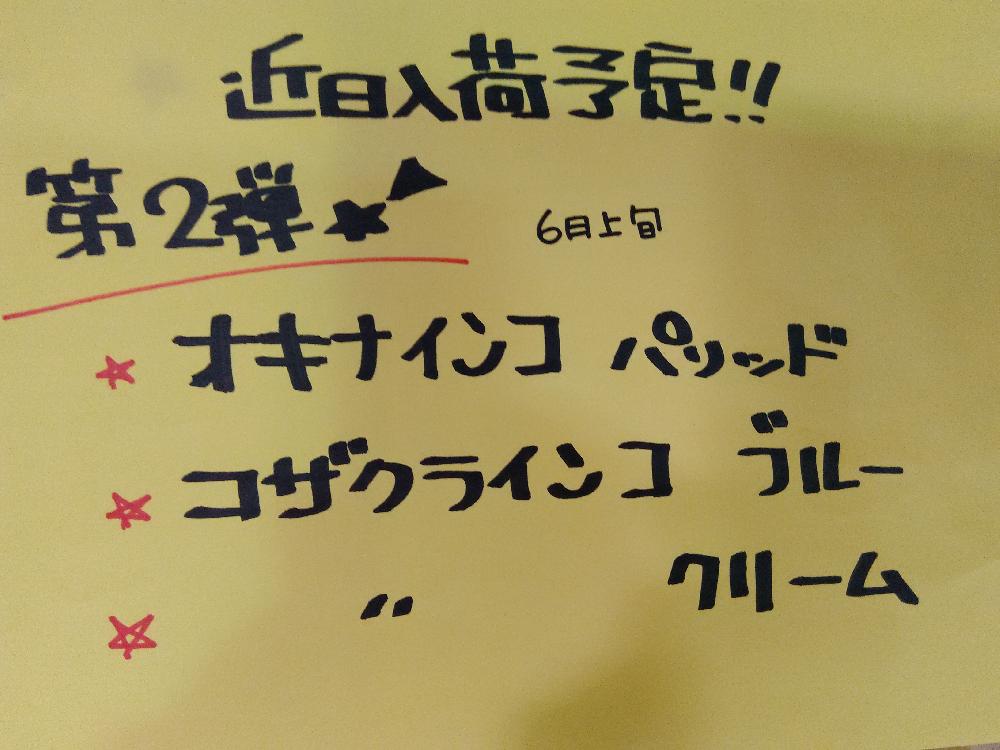 近日入荷予定!!
第2弾★
6月上旬
☆ オキナインコ パリッド
☆ コザクラインコ ブルー
☆ 〃 クリーム